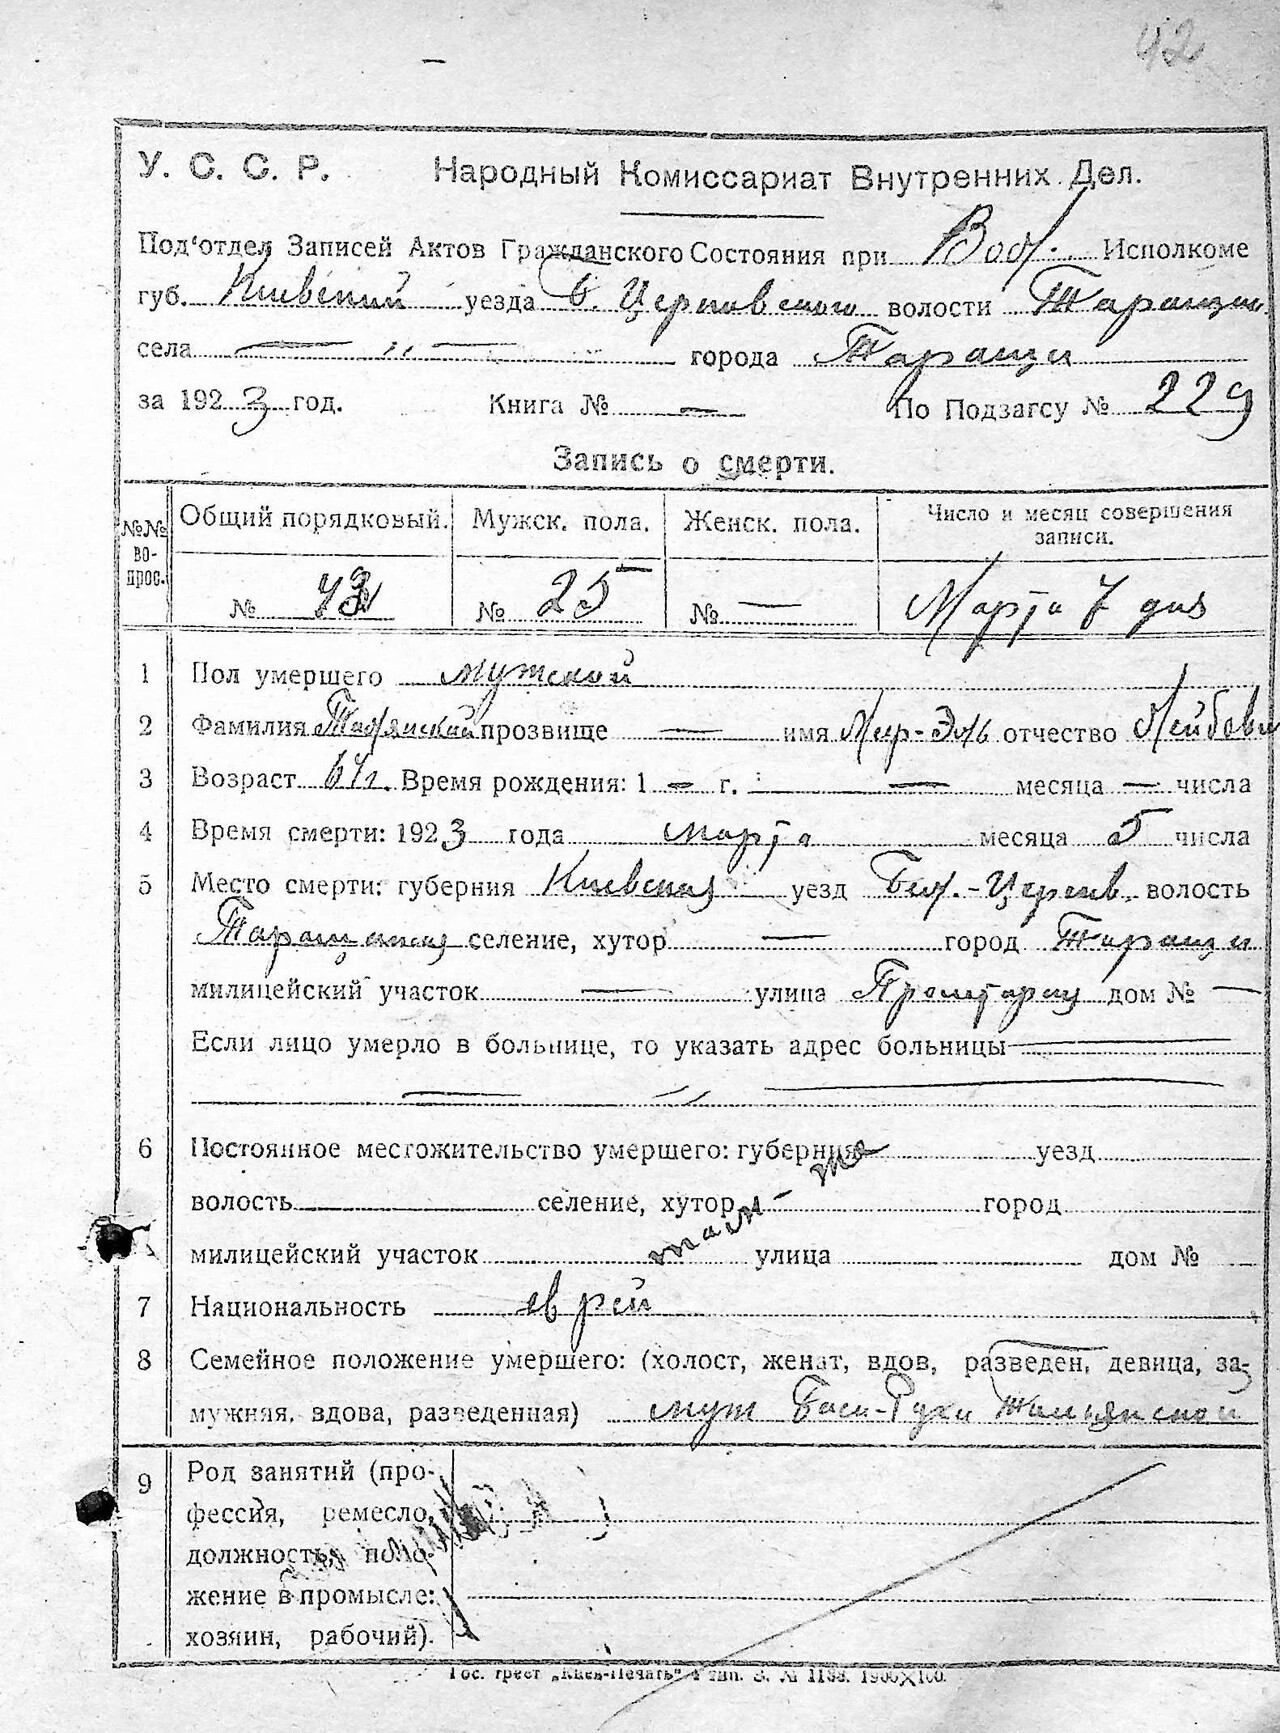 42
У. С. С. Р. Народный Комиссариат Внутренних Дел.
Под'отдел Записей Актов Гражданского Состояния при Вол. Исполкоме
губ. Киевской уезда Б. Церковского волости Таращан
села — „ — города Таращи
за 1923 год. Книга № — По Подзагсу № 229
Запись о смерти.
№№ вопрос. Общий порядковый. Мужск. пола. Женск. пола. Число и месяц совершения записи.
№ 43 № 25 № — Марта 7 дня
1 Пол умершего мужской
2 Фамилия прозвище — имя Мир-Эль отчество Лейбови
3 Возраст 64 г. Время рождения: 1 — г. — месяца — числа
4 Время смерти: 1923 года марта месяца 5 числа
5 Место смерти: губерния Киевская уезд Бел.-Церков. волость
Таращанская селение, хутор — город Таращи
милицейский участок — улица Пролетарск дом № —
Если лицо умерло в больнице, то указать адрес больницы —
— „ —
6 Постоянное местожительство умершего: губерния уезд
волость селение, хутор город
там-же
милицейский участок улица дом №
7 Национальность еврей
8 Семейное положение умершего: (холост, женат, вдов, разведен, девица, за-
мужняя, вдова, разведенная) муж Баси-Рухи
9 Род занятий (про-
фессия, ремесло,
должность, поло-
жение в промысле:
хозяин, рабочий).
Гос. трест „Киев-Печать" 4 тип. З. № 1188. 1900×100.